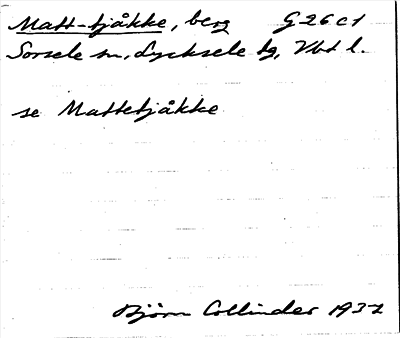 Matt-tjåkke, berg G 26 c 1
Sorsele sn, Lycksele tg, Vbt l.
se Mattetjåkke
Björn Collinder 1932